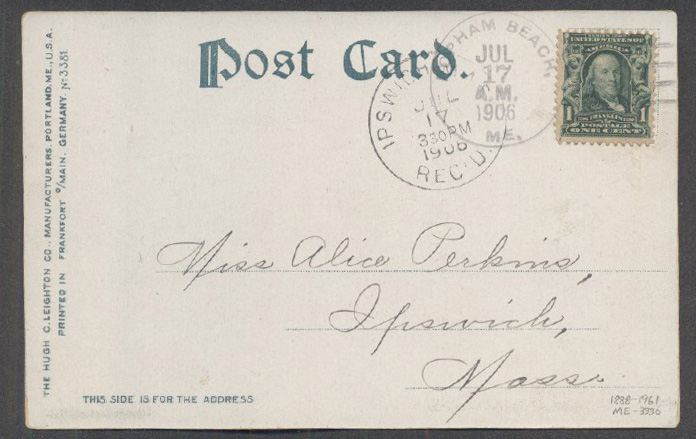 Post Card.
POPHAM BEACH,
JUL
17
A.M.
1906
ME.
IPSWICH
JUL
17
3 30 PM
1906
REC'D.
UNITED STATES OF
AMERICA
1 1
FRANKLIN
POSTAGE
ONE CENT
Miss Alice Perkins,
Ipswich,
Mass.
THIS SIDE IS FOR THE ADDRESS
1888-1961
ME-3336
THE HUGH C. LEIGHTON CO., MANUFACTURERS, PORTLAND, ME., U.S.A.
PRINTED IN FRANKFORT o/MAIN, GERMANY. No 3351.